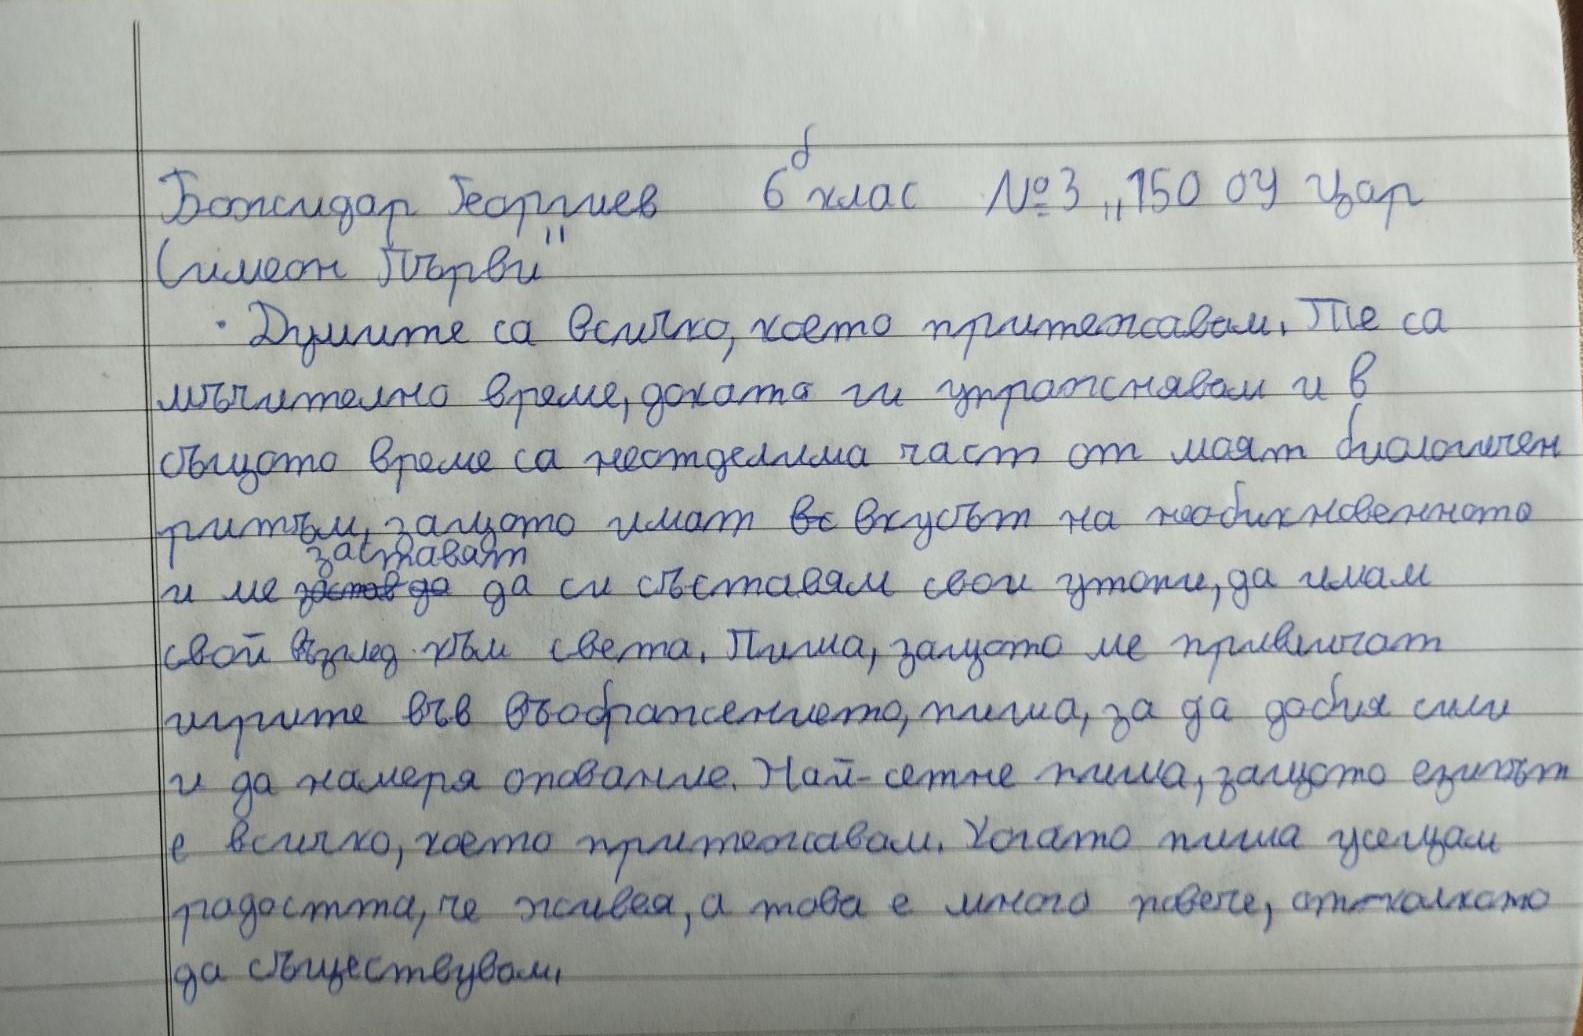 Божидар Георгиев 6б клас №3 „150 ОУ Цар
Симеон Първи"
Думите са всичко, което притежавам. Те са
мъчително време, докато ги упражнявам и в
същото време са неотделима част от моят биологичен
ритъм, защото имат вкусът на необикновенното
заставят
и ме да си съставям свои утопи, да имам
свой взглед към света. Пиша, защото ме привличат
игрите във въображението, пиша, за да добия сили
и да намеря опование. Най-сетне пиша, защото езикът
е всичко, което притежавам. Когато пиша усещам
радостта, че живея, а това е много повече, отколкото
да съществувам.